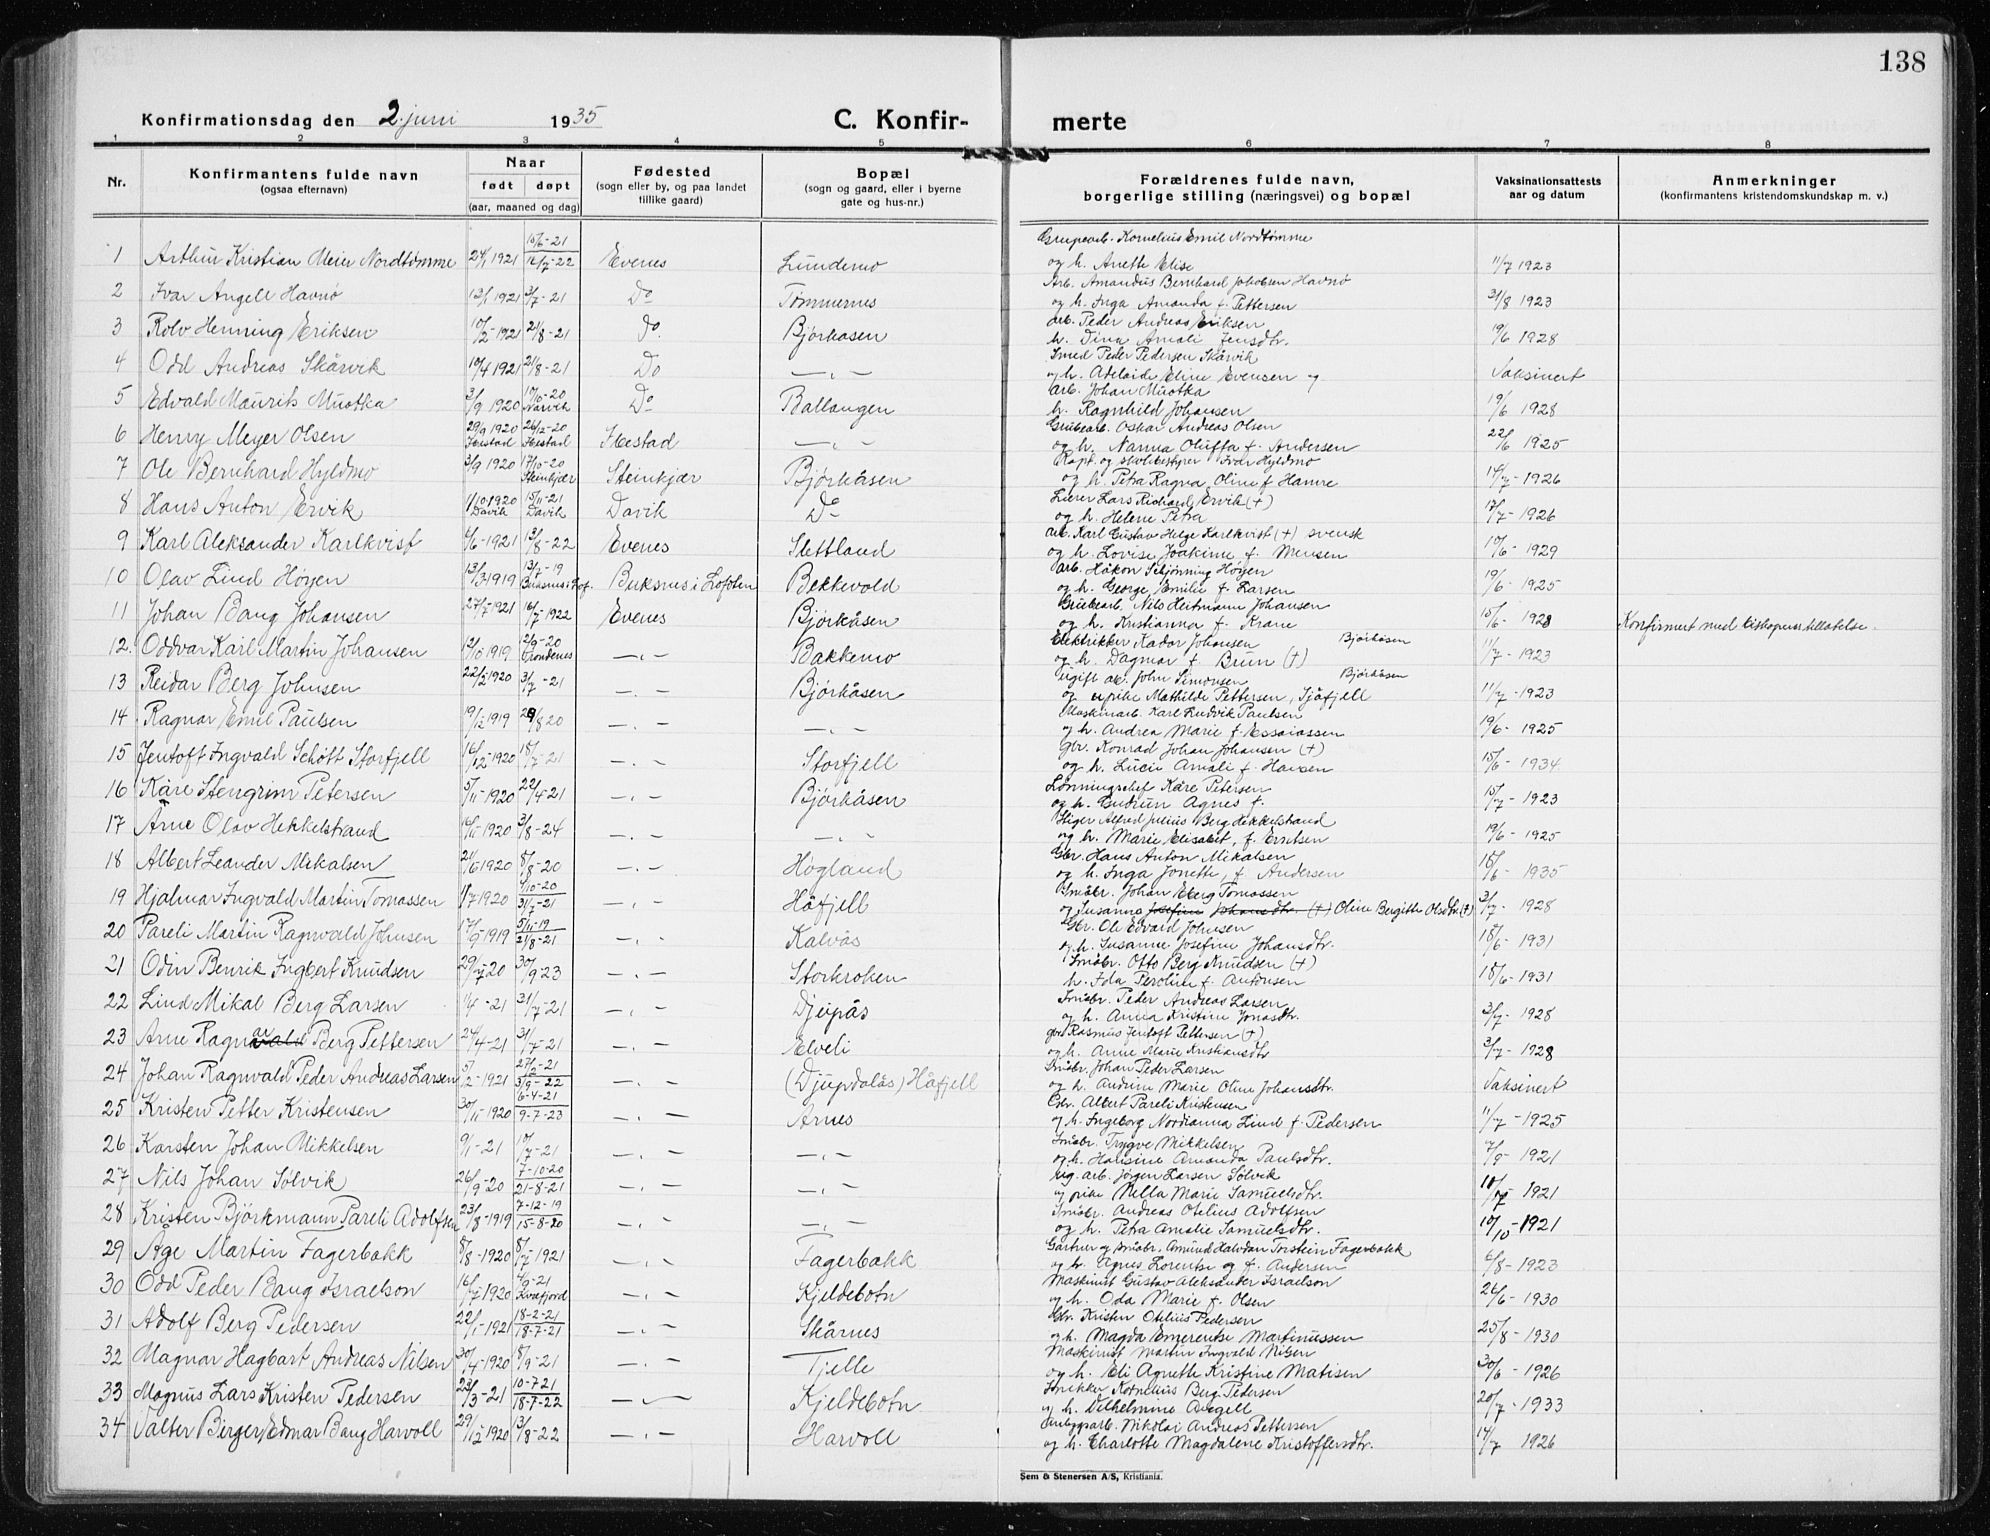 138
Konfirmationsdag den 2. juni 1935 C. Konfir- merte
1 2 3 4 5 6 7 8
Nr. Konfirmantens fulde navn (ogsaa efternavn) Naar født døpt (aar, maaned og dag) Fødested (sogn eller by, og paa landet tillike gaard) Bopæl (sogn og gaard, eller i byerne gate og hus-nr.) Forældrenes fulde navn, borgerlige stilling (næringsvei) og bopæl Vaksinationsattests aar og datum Anmerkninger (konfirmantens kristendomskundskap m. v.)
10/6-21 Grupearb. Kornelius Emil Nordtømme
1 Arthur Kristian Meier Nordtømme 24/1 1921 16/7-22 Evenes Lundemo og h. Anette Elise 11/7 1923
Arb. Amandus Bernhard Jakobsen Havnø
2 Ivar Angell Havnø 13/1 1921 3/7-21 Do Tømmernes og h. Inga Amanda f. Pettersen 31/8 1923
arb. Peder Andreas Eriksen
3 Rolv Henning Eriksen 10/2-1921 21/8-21 Do. Bjørkåsen h. Dina Amali Jensdtr. 19/6 1928
Smed Peder Pedersen Skårvik
4 Odd Andreas Skårvik 10/4 1921 21/8-21 Do — „ — og h. Adelaide Eline Evensen Vaksinert
arb. Johan Muotka
5 Edvald Maurits Muotka 3/9 1920 10/10-20 Narvik Do Ballangen h. Ragnhild Johansen 19/6 1928
Grubearb. Oskar Andreas Olsen
6 Henry Meyer Olsen 29/9 1920 Ibestad 26/12-20 Ibestad Ibestad — „ — og h. Nanna Oluffa f. Andersen 22/6 1925
Kapt. og skolebestyrer Ivar Hyldmo
7 Ole Bernhard Hyldmo 3/9 1920 17/10-20 Steinkjær Steinkjær Bjørkåsen og h. Petra Ragna Oline f. Hamre 14/7-1926
Lærer Lars Richard Ervik (+)
8 Hans Anton Ervik 1/10-1920 Davik 15/11-21 Davik Davik Do og h. Helene Petra 17/7-1926
arb. Karl Gustav Helge Karlkvist (+) svensk
9 Karl Aleksander Karlkvist 4/6-1921 13/8-22 Evenes Slettland og h. Lovise Joakime f. Mensen 10/6-1929
arb. Håkon Schjønning Høyen
10 Olav Lind Høyen 13/3-1919 13/7-19 Buksnes i Lof. Buksnes i Lofoten Bekkevold og h. George Emilie f. Larsen 19/6-1925
Grubearb. Nils Heitmann Johansen
11 Johan Bang Johansen 27/7 1921 16/7-1922 Evenes Bjørkåsen og h. Kristianna f. Krane 15/6-1928 Konfirmert med biskopens tillatelse.
Elektrikker Kador Johansen Bjørkåsen
12. Oddvar Karl Martin Johansen 12/10 1919 12/9-20 Trondenes — „ — Bakkemo og h. Dagmar f. Brun (+) 11/7-1923
Ugift ar. John Simonsen Bjørkåsen
13 Reidar Berg Johnsen 22/2 1920 3/7-21 — „ — Bjørkåsen og pike Mathilde Pettersen, Sjåfjell 11/7-1923
Maskinarb. Karl Ludvik Paulsen
14 Ragnar Emil Paulsen 19/12 1919 29/8 20 — „ — — „ — og h. Andrea Marie f. Essaiassen 19/6-1925
Gbr. Konrad Johan Johansen (+)
15 Jentoft Ingvald Schøtt Storfjell 16/12-1920 18/7-21 — „ — Storfjell og h. Lucie Amali f. Hansen 15/6-1934
Lønningschef Kåre Petersen
16 Kåre Stengrim Petersen 5/11-1920 22/4-21 — „ — Bjørkåsen og h. Gudrun Agnes f. 15/7-1923
Stiger Alfred Julius Berg Hekkelstrand
17 Arne Olav Hekkelstrand 14/11-1920 3/8-24 — „ — — „ — og h. Marie Elisabet, f. Erntsen 19/6-1925
Gbr. Hans Anton Mikalsen
18 Albert Leander Mikalsen 21/6 1920 8/8-20 — „ — Høgland og h. Inga Jonette, f. Andersen 18/6-1935
Småbr. Johan Eberg Tomassen
19 Hjalmar Ingvald Martin Tomassen 1/7 1920 4/10-20 31/7-21 — „ — Håfjell og Susanna Josefine Johansdtr. (+) Oline Bergitte Olsdtr. (+) 3/7-1928
Gbr. Ole Edvard Johnsen
20 Pareli Martin Ragnvald Johnsen 17/9 1919 5/11-19 21/8-21 — „ — Kalvås og h. Susanne Josefine Johansdtr. 18/6-1931
Småbr. Otto Berg Knudsen (+)
21 Odin Benrik Ingbert Knudsen 29/7-20 30/9 23 — „ — Storkroken h. Ida Peroline f. Antonsen 18/6-1931
Småbr. Peder Andreas Larsen
22 Lind Mikal Berg Larsen 1/4-21 31/7-21 — „ — Djupås og h. Anna Kristine Jonasdtr. 3/7-1928
gbr. Rasmus Jentoft Pettersen (+)
23 Arne Ragnvald ar Berg Pettersen 24/4-21 31/7-21 — „ — Elveli og h. Anne Marie Kristiansdtr 3/7-1928
Småbr. Johan Peder Larsen
24 Johan Ragnvald Peder Andreas Larsen 5/2-1921 27/2-21 3/9-22 — „ — (Djupdalås) Håfjell og h. Andrine Marie Oline Johansdtr. Vaksinert
Gbr. Albert Pareli Kristensen
25 Kristen Petter Kristensen 30/11-1920 6-4-21 9-7-23 — „ — Arnes og h. Ingeborg Nordianna Lind f. Pedersen 11/7-1925
Småbr. Trygve Mikkelsen
26 Karsten Johan Mikkelsen 9/1-21 10/7-21 — „ — — „ — og h. Hansine Amanda Paulsdtr. 7/9-1921
ug. arb. Jørgen Larsen Sølvik
27 Nils Johan Sølvik 26/9-20 7-10-20 21-8-21 — „ — — „ — og pike Nella Marie Samuelsdtr. 10/10-1921
Småbr. Andreas Otelius Adolfsen
28 Kristen Björkmann Pareli Adolfsen 23/8-1919 7-12-19 15-8-20 — „ — — „ — og h. Petra Amalie Samuelsdtr. 10/10-1921
Gartner og småbr. Amund Halvdan Torstein Fagerbakk
29 Åge Martin Fagerbakk 8/8-1920 8/7-1921 — „ — Fagerbakk og h. Agnes Lorentse f. Andersen 6/8-1923
Maskinist Gustav Aleksander Israelson
30 Odd Peder Bang Israelson 16/7 1920 4/9-21 Kvæfjord — „ — Kjeldebotn og h. Oda Marie f. Olsen 26/6-1930
Gbr. Kristen Otelius Pedersen
31 Adolf Berg Pedersen 22/1-1921 18-2-21 18-7-21 — „ — Skårnes og h. Magda Emerentse Martinussen 25/8-1930
Maskinist Martin Ingvald Nilsen
32 Magnar Hagbart Andreas Nilsen 30/4-1920 18/9-21 — „ — Tjelle og h. Eli Agnethe Kristine Matisen 30/6-1926
Snekker Kornelius Berg Pedersen
33 Magnus Lars Kristen Pedersen 23/3-21 10-7-21 18-7-22 — „ — Kjeldebotn og h. Vilhelmine Angell 20/7-1933
Anleggsarb. Nikolai Andreas Pettersen
34 Valter Birger Edmar Bang Harvoll 29/12 1920 13/8-22 — „ — Harvoll og h. Charlotte Magdalene Kristoffersdtr. 14/7 1926
Sem & Stenersen A/S, Kristiania.